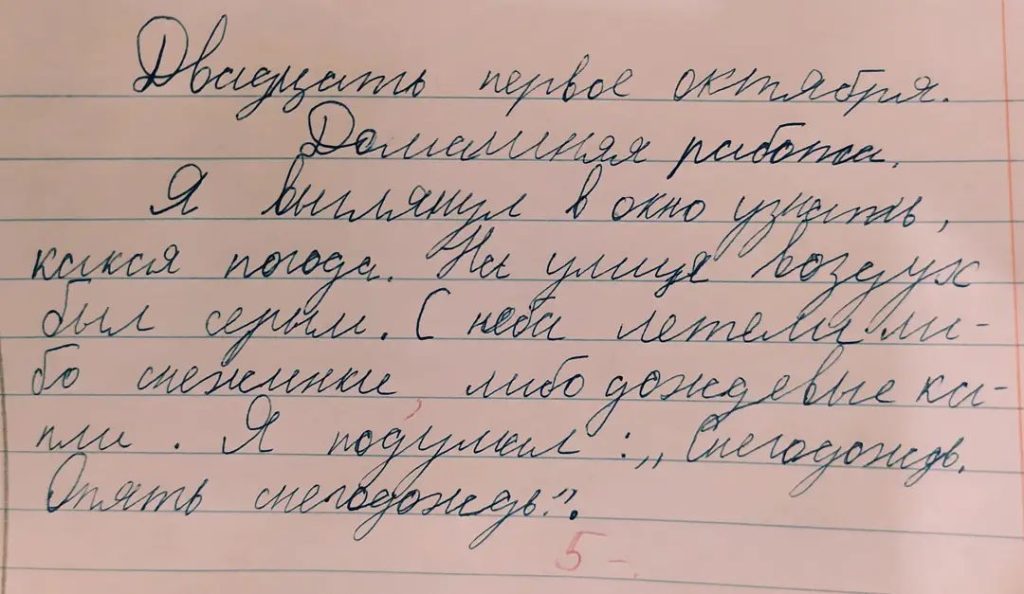 Двадцать первое октября.
Домашняя работа.
Я выглянул в окно узнать,
какая погода. На улице воздух
был серым. С неба летели ли-
бо снежинки, либо дождевые ка-
пли. Я подумал: „Снегодождь.
Опять снегодождь.".
5-.